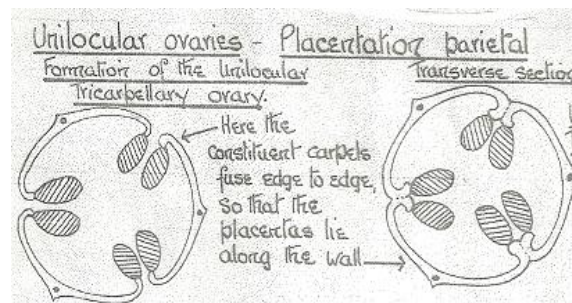 Unilocular ovaries - Placentation parietal
Formation of the Unilocular
Tricarpellary ovary.
Transverse section
Here the
constituent carpels
fuse edge to edge,
so that the
placentas lie
along the wall